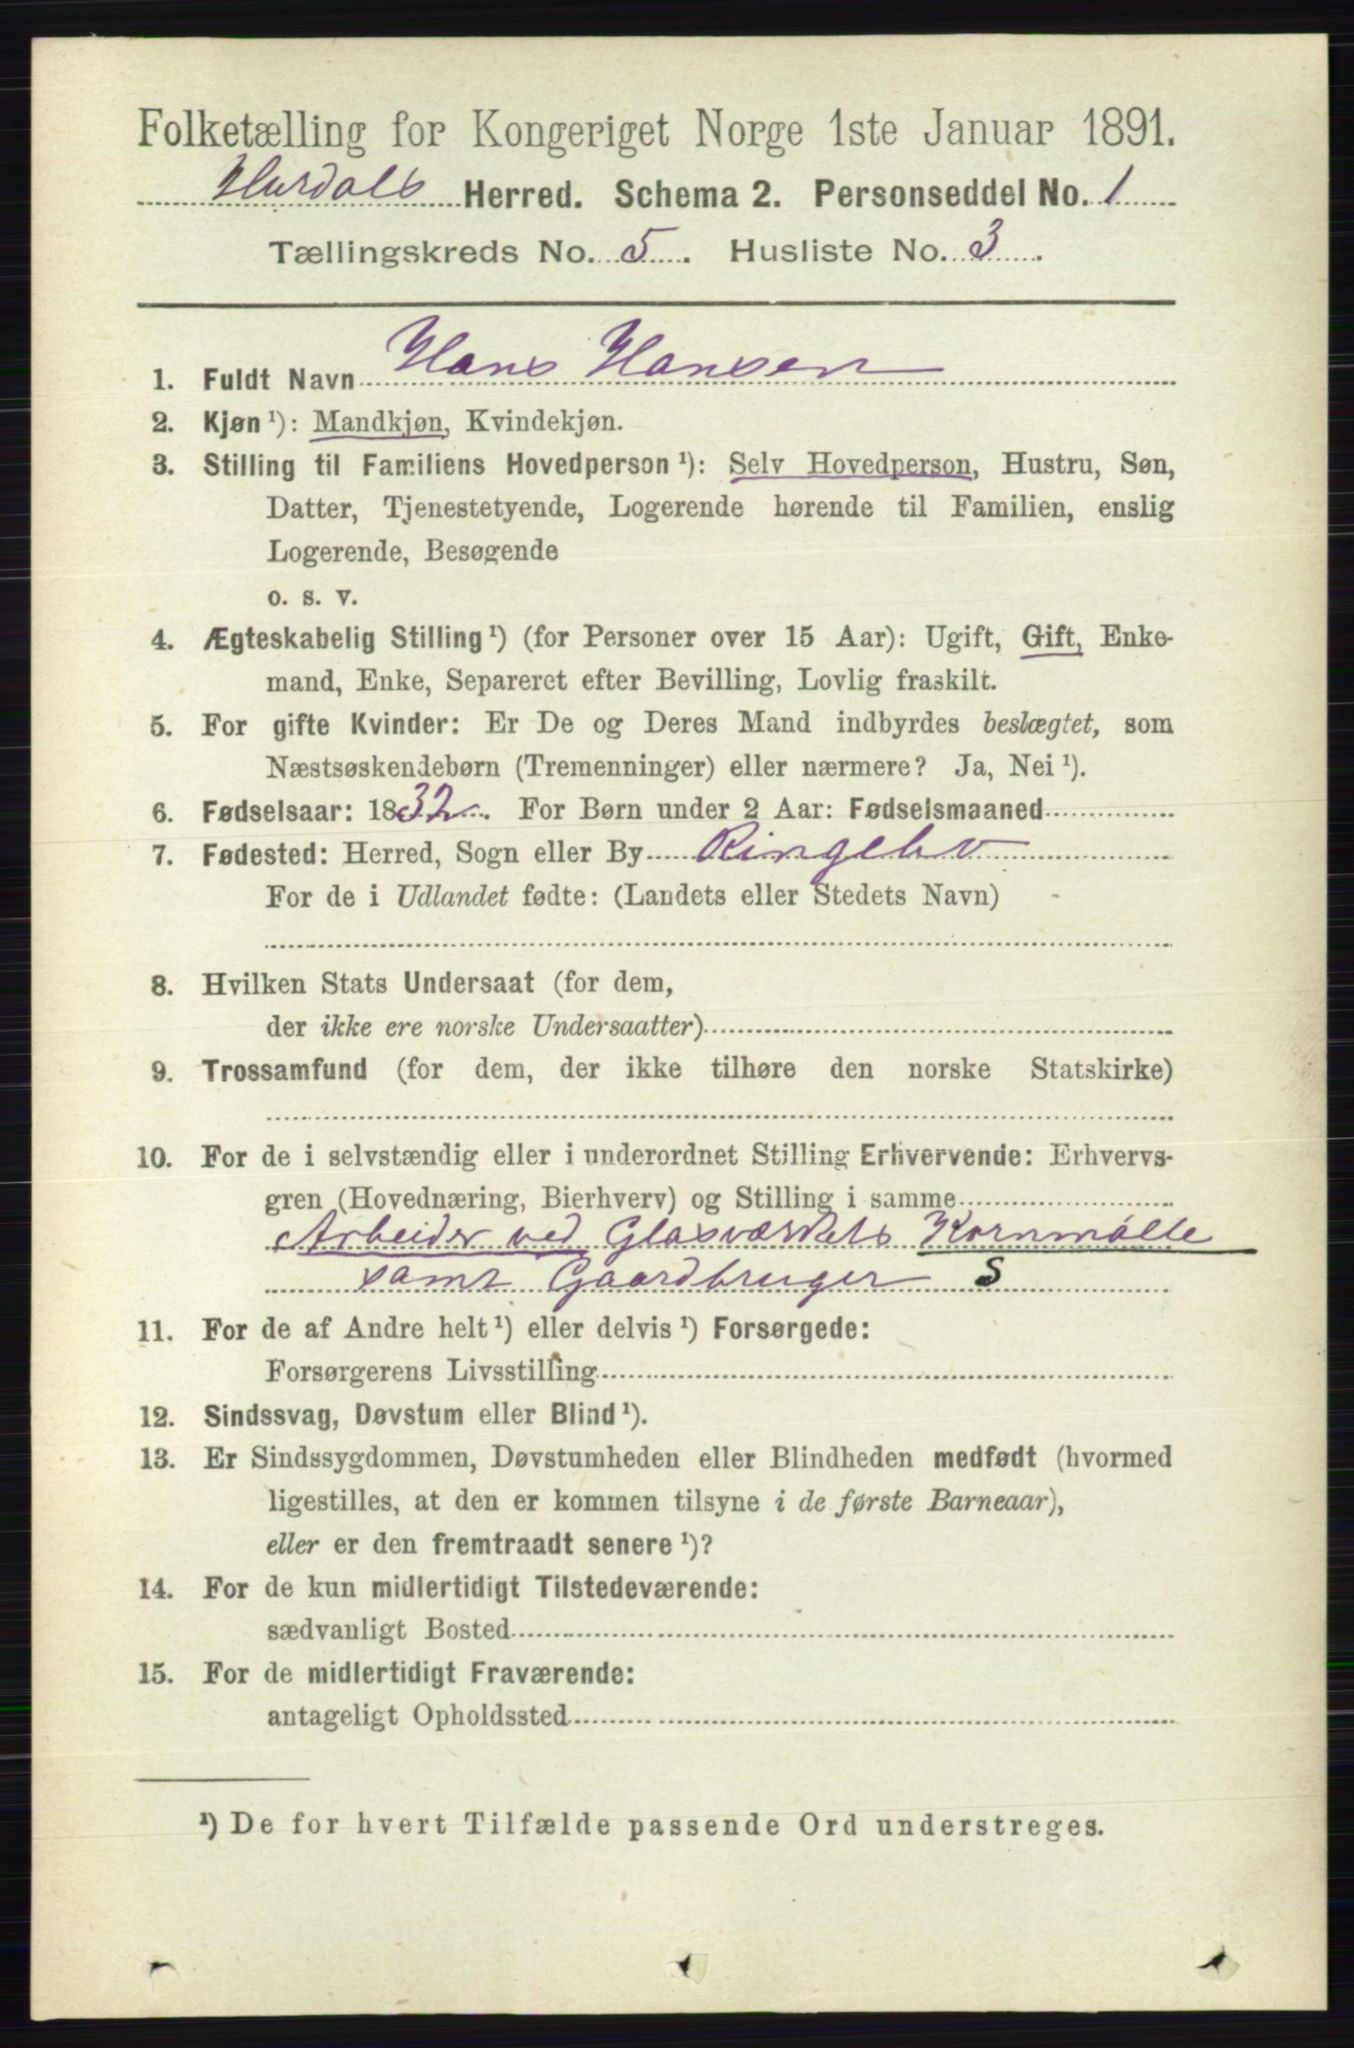 Folketælling for Kongeriget Norge 1ste Januar 1891.
Hurdals Herred. Schema 2. Personseddel No. 1
Tællingskreds No. 5. Husliste No. 3.
1. Fuldt Navn Hans Hansen
2. Kjøn¹): Mandkjøn, Kvindekjøn.
3. Stilling til Familiens Hovedperson¹): Selv Hovedperson, Hustru, Søn,
Datter, Tjenestetyende, Logerende hørende til Familien, enslig
Logerende, Besøgende
o. s. v.
4. Ægteskabelig Stilling¹) (for Personer over 15 Aar): Ugift, Gift, Enke-
mand, Enke, Separeret efter Bevilling, Lovlig fraskilt.
5. For gifte Kvinder: Er De og Deres Mand indbyrdes beslægtet, som
Næstsøskendebørn (Tremenninger) eller nærmere? Ja, Nei¹).
6. Fødselsaar: 1832. For Børn under 2 Aar: Fødselsmaaned
7. Fødested: Herred, Sogn eller By Ringebo
For de i Udlandet fødte: (Landets eller Stedets Navn)
8. Hvilken Stats Undersaat (for dem,
der ikke ere norske Undersaatter)
9. Trossamfund (for dem, der ikke tilhøre den norske Statskirke)
10. For de i selvstændig eller i underordnet Stilling Erhvervende: Erhvervs-
gren (Hovednæring, Bierhverv) og Stilling i samme
Arbeider ved Glasværkets Kornmølle
samt Gaardbruger S
11. For de af Andre helt¹) eller delvis¹) Forsørgede:
Forsørgerens Livsstilling
12. Sindssvag, Døvstum eller Blind¹).
13. Er Sindssygdommen, Døvstumheden eller Blindheden medfødt (hvormed
ligestilles, at den er kommen tilsyne i de første Barneaar),
eller er den fremtraadt senere¹)?
14. For de kun midlertidigt Tilstedeværende:
sædvanligt Bosted
15. For de midlertidigt Fraværende:
antageligt Opholdssted
¹) De for hvert Tilfælde passende Ord understreges.